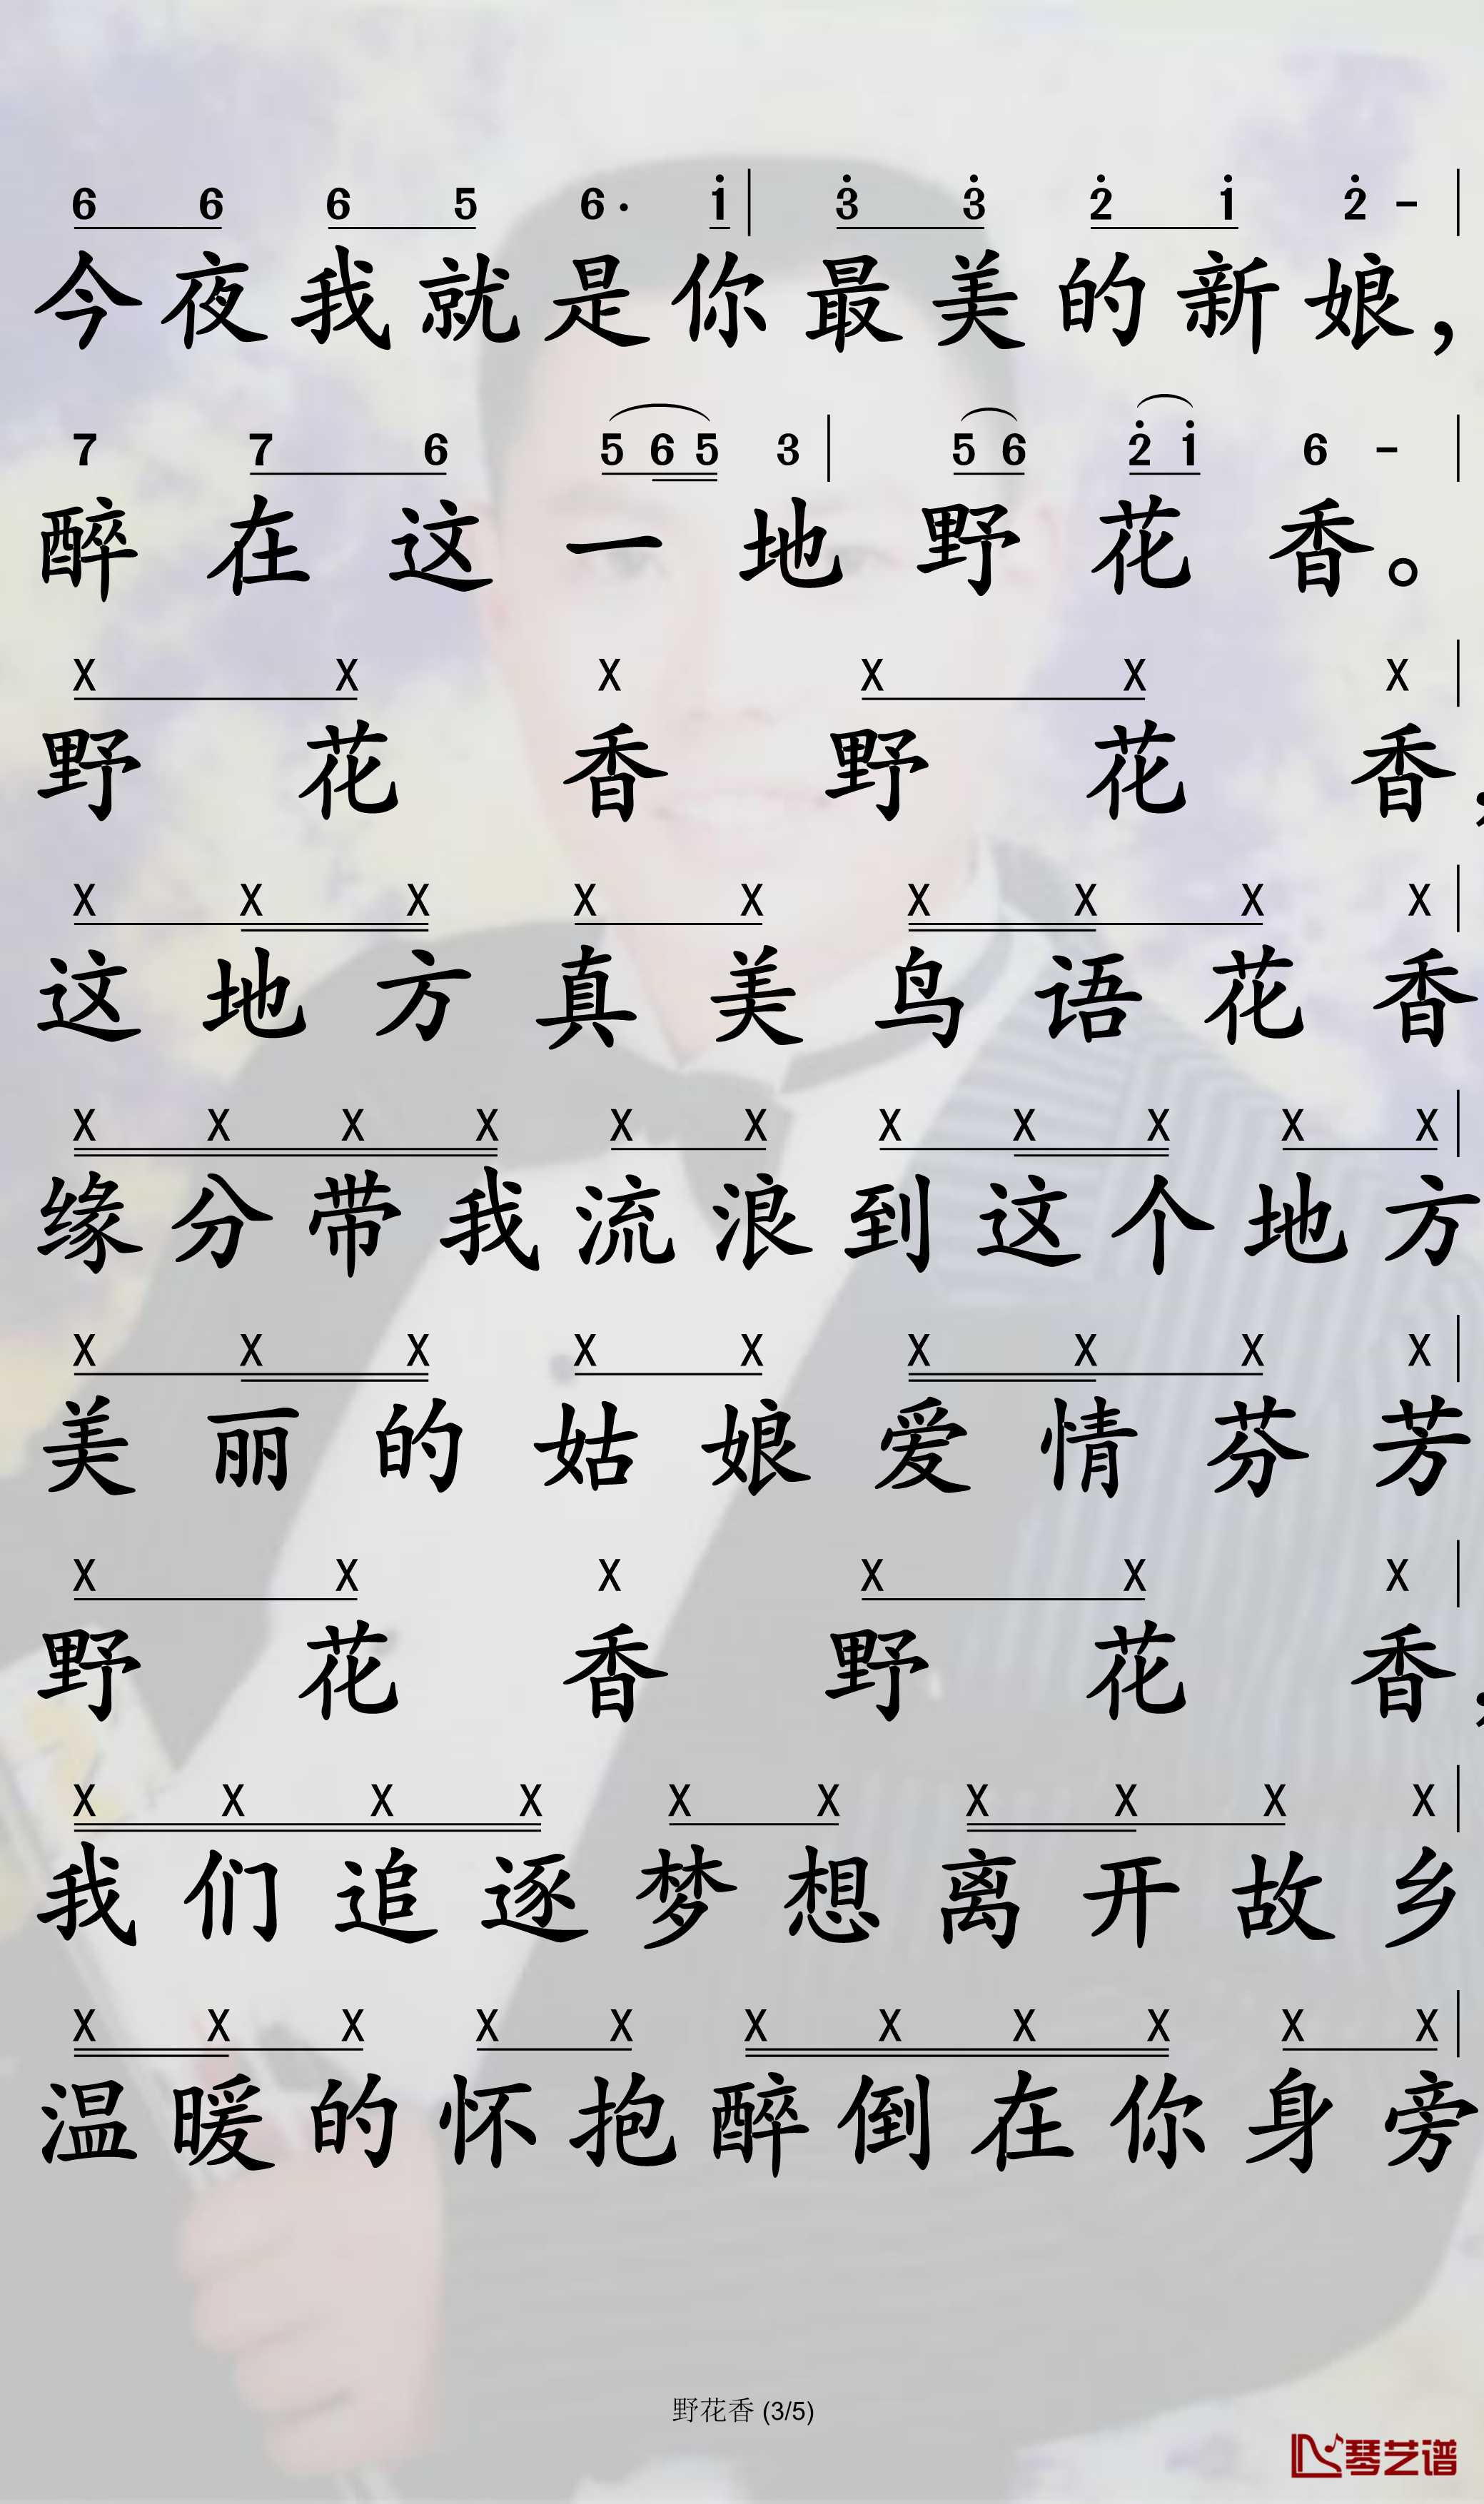 6 6 6 5 6· i | 3̇ 3̇ 2̇ i 2̇ - |
今夜我就是你最美的新娘，
7 7 6 5 6 5 3 | 5 6 2̇ i 6 - |
醉在这一地野花香。
X X X X X X |
野花香野花香，
X X X X X X X X X |
这地方真美鸟语花香
X X X X X X X X X X X |
缘分带我流浪到这个地方
X X X X X X X X X |
美丽的姑娘爱情芬芳
X X X X X X |
野花香野花香，
X X X X X X X X X X |
我们追逐梦想离开故乡
X X X X X X X X X X X |
温暖的怀抱醉倒在你身旁
野花香 (3/5)
琴艺谱